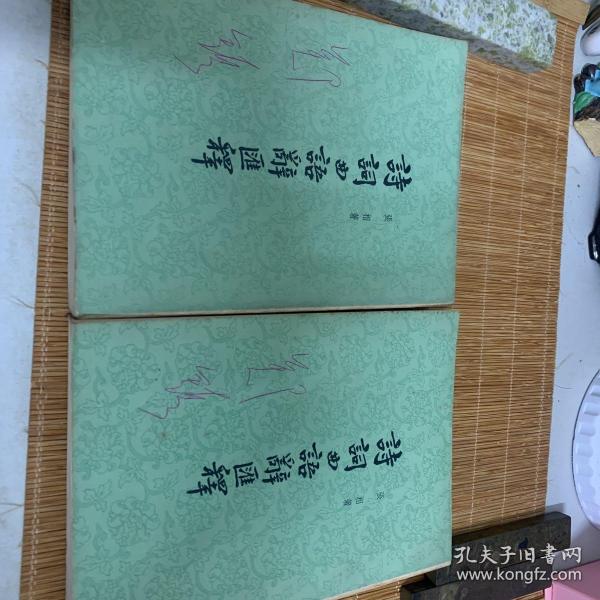 詩詞曲語辭匯釋
張相著
詩詞曲語辭匯釋
張相著
孔夫子旧書网
www.kongfz.com